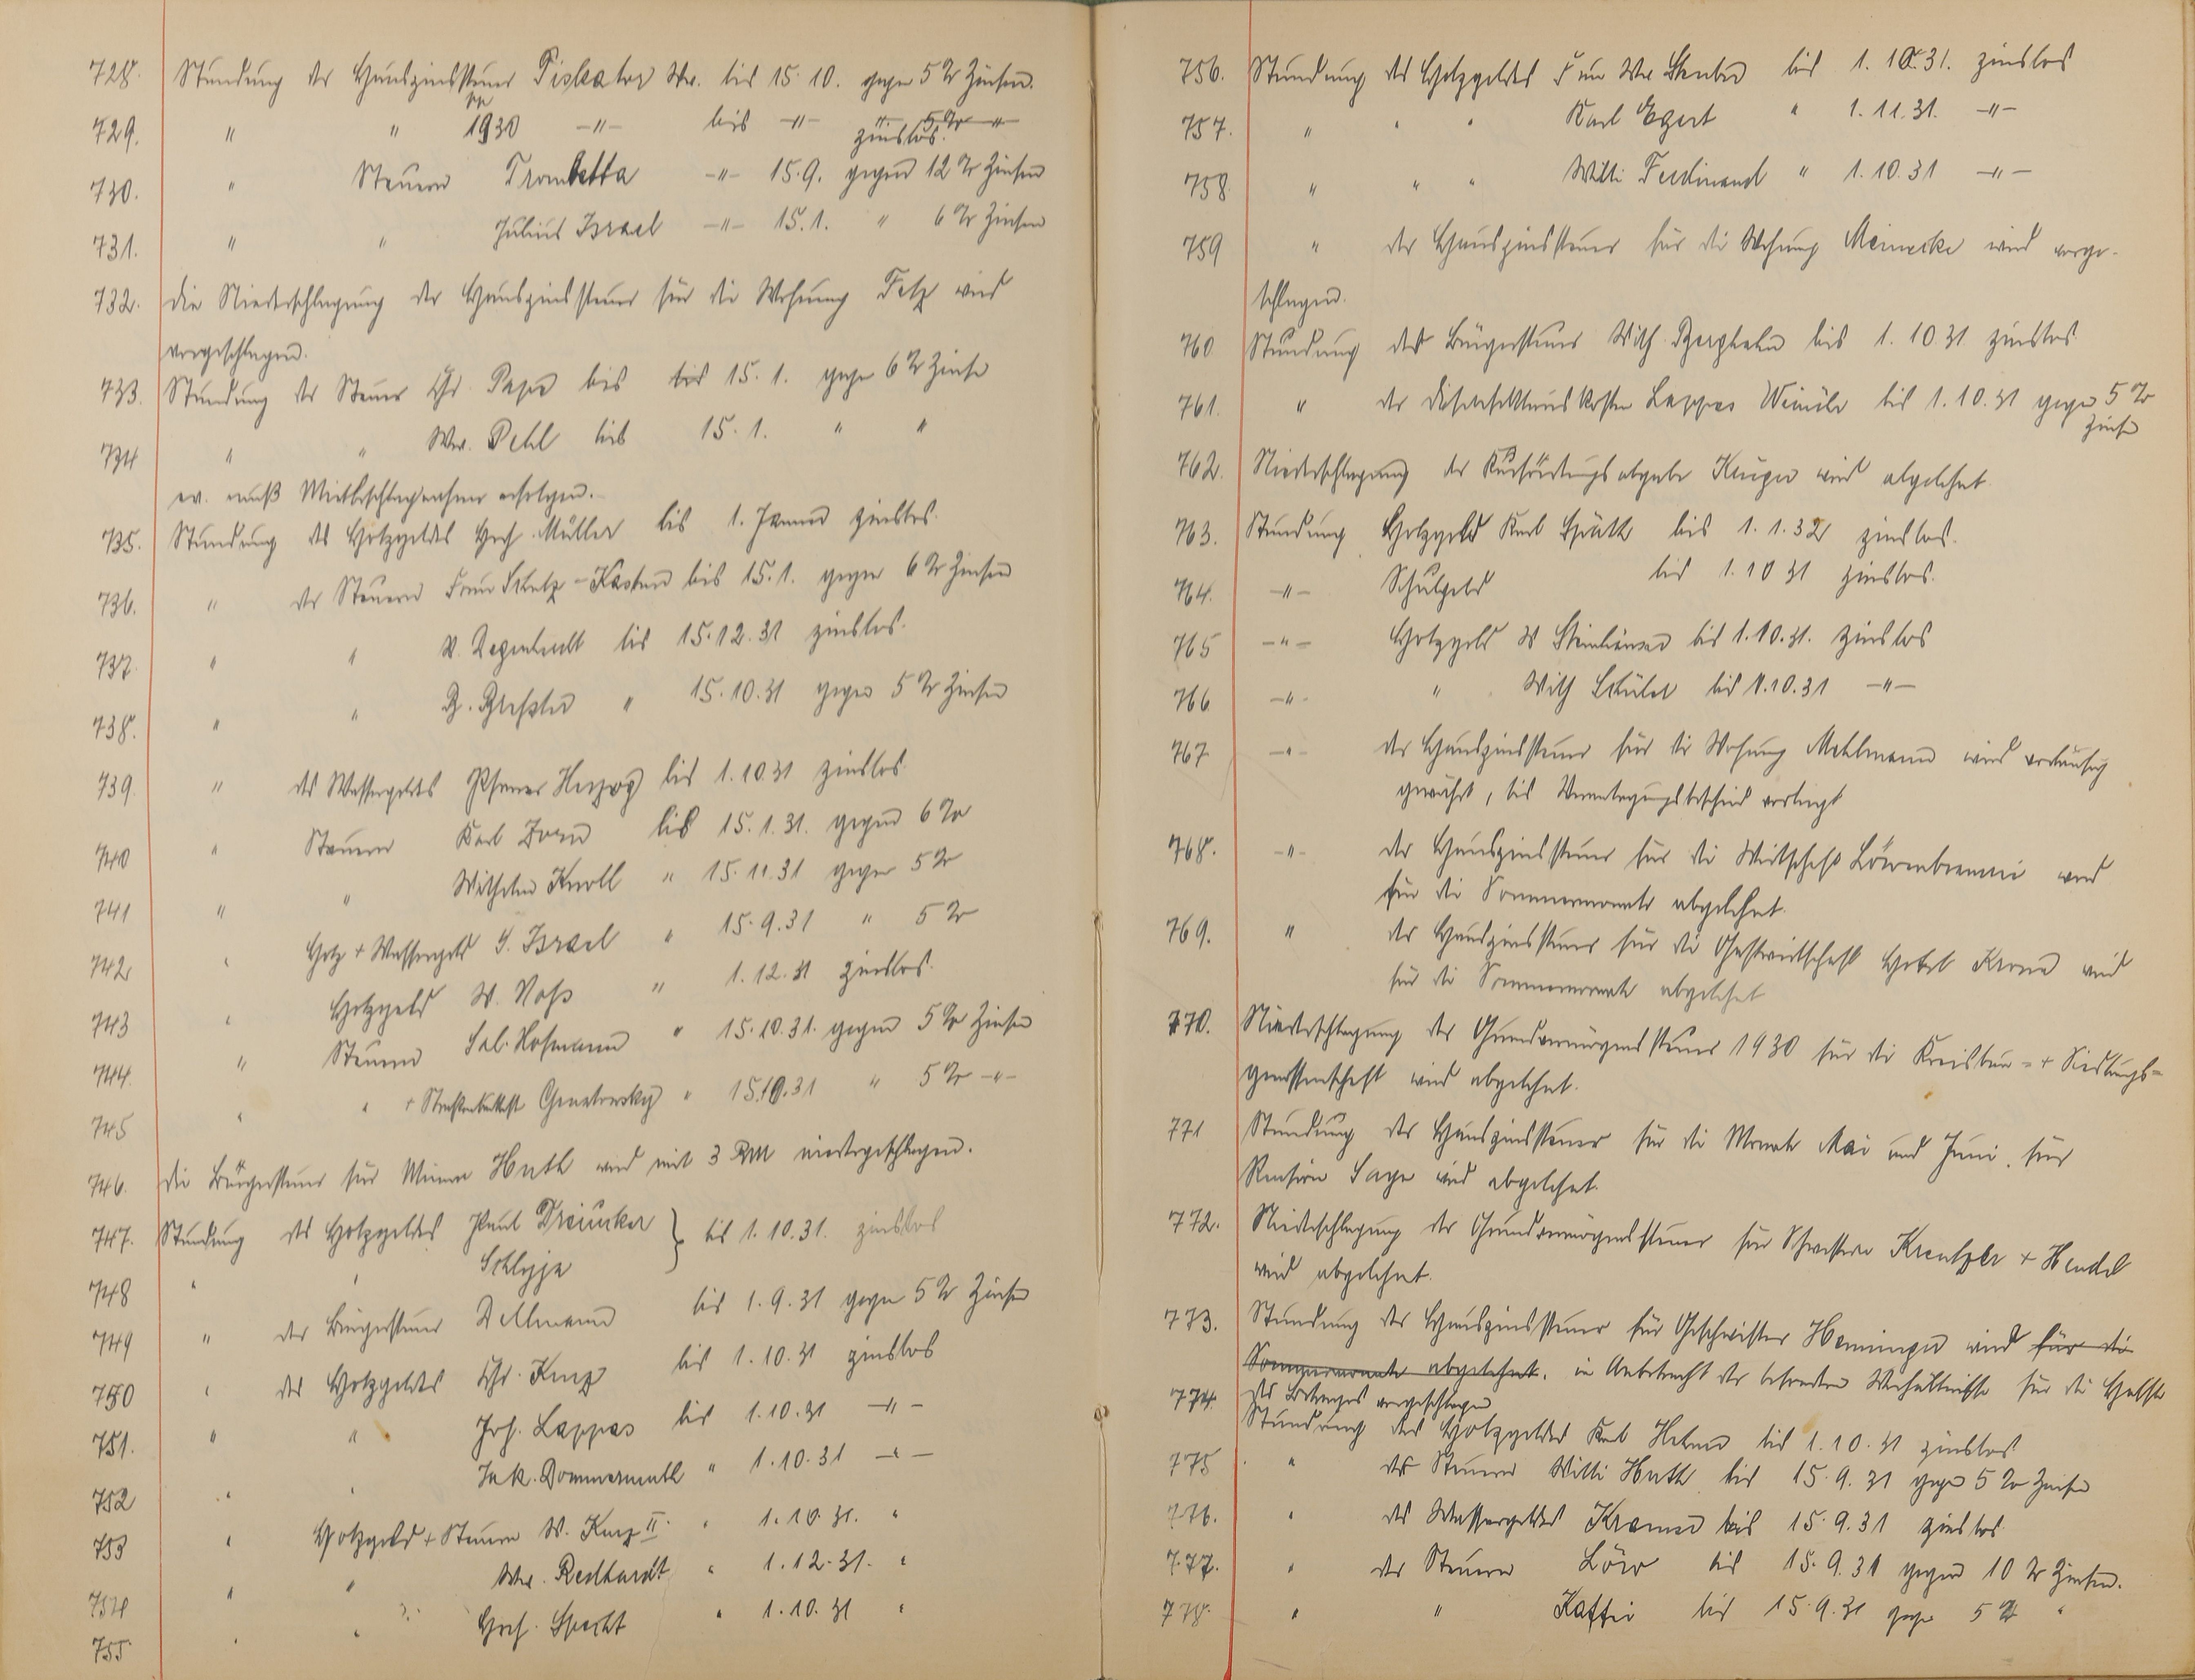 728. Stundung der Hauszinssteuer Piskator Ww. bis 15. 10. gegen 5 % Zinsen.
729. " " pp 1930 -"- bis -"- zinslos.
730. " Steuern Trombetta -"- 15.9. gegen 12 % Zinsen
731. " " Julius Israel -"- 15.1. " 6 % Zinsen
732. die Niederschlagung der Hauszinssteuer für die Wohnung Fetz wird
vorgeschlagen.
733. Stundung der Steuer Chr. Pape bis bis 15. 1. gegen 6 % Zinsen
734 " " Ww. Pehl bis 15. 1. " "
ev. muß Mietbeschlagnahme erfolgen.
735. Stundung des Holzgeldes Hch. Müller bis 1. Januar zinslos.
736. " der Steuern Frau Schulz-Kasten bis 15.1. gegen 6 % Zinsen
737. " " bis 15.12.31 zinslos.
738. " " " 15.10.31 gegen 5 % Zinsen
739. " des Wassergeldes Pfarrer Herzog bis 1.10.31 zinslos
740 " Steuern Karl Zorn bis 15.1.31. gegen 6 %
741 " " Wilhelm Knoll " 15.11.31 gegen 5 %
742 " Holz + Wassergeld J. Israel " 15.9.31 " 5 %
743 " Holzgeld W. Voss " 1.12.31 zinslos.
744. " Steuern Sal. Hofmann " 15.10.31. gegen 5 % Zinsen
745 " " + " 15.10.31 " 5 % -"-
746. die Bürgersteuer für Minna Huth wird mit 3 RM niedergeschlagen.
747. Stundung des Holzgeldes Paul Dreiucker } bis 1.10.31. zinslos
748 " "
749 " der Bürgersteuer Dellmann bis 1.9.31 gegen 5 % Zinsen
750 " des Holzgeldes Chr. Kurz bis 1.10.31 zinslos
751. " " Joh. Lappas bis 1.10.31 -"-
752 " " Jak. Dommermuth " 1.10.31 -"-
753 " Holzgeld + Steuern W. Kurz II. " 1.10.31. "
754 " " Ww. Redhardt " 1.12.31. "
755 " " Hch. Specht " 1.10.31 "
756. Stundung des Holzgeldes Frau Ww. bis 1. 10. 31. zinslos
757. " " " Karl Egert " 1.11.31. -"-
758 " " " Willi Ferdinand " 1.10.31 -"-
759 " der Hauszinssteuer für die Wohnung Meinecke wird vorge-
schlagen.
760 Stundung der Bürgersteuer Wilh. bis 1. 10 31 zinslos
761. " der Desinfektionskosten Lappas bis 1.10.31 gegen 5 %
Zinsen
762. Niederschlagung der wird abgelehnt
763. Stundung Holzgeld Karl Späth bis 1. 1. 32 zinslos.
764. -"- Schulgeld bis 1. 10 31 zinslos.
765 -"- Holzgeld W bis 1.10.31. zinslos
766 -"- " Wilh Schüler bis 1.10.31 -"-
767 -"- der Hauszinssteuer für die Wohnung Mehlmann wird vorläufig
gewährt, bis Veranlagungsbescheid vorliegt
768. -"- der Hauszinssteuer für die Wirtschaft Löwenbrauerei wird
für die Sommermonate abgelehnt.
769. " der Hauszinssteuer für die Gastwirtschaft Hotel Krone wird
für die Sommermonate abgelehnt
770. Niederschlagung der Grundvermögenssteuer 1930 für die Kreisbau- + Siedlungs-
genossenschaft wird abgelehnt.
771 Stundung der Hauszinssteuer für die Monate Mai und Juni für
Pension Sage wird abgelehnt.
772. Niederschlagung der Grundvermögenssteuer für Schwestern Kreutzler + Hendel
wird abgelehnt.
773. Stundung der Hauszinssteuer für Geschwister Henninger wird für die
Sommermonate abgelehnt. in Anbetracht der besonderen Verhältnisse für die Hälfte
des Betrages vorgeschlagen
774. Stundung des Holzgeldes Karl Hehner bis 1.10.31 zinslos
775 " der Steuern Willi Huth bis 15.9.31 gegen 5 % Zinsen
776. " des Wassergeldes Kramer bis 15.9.31 zinslos
777. " der Steuern Löw bis 15.9.31 gegen 10 % Zinsen.
778. " " Kaffei bis 15.9.31 gegen 5 % "